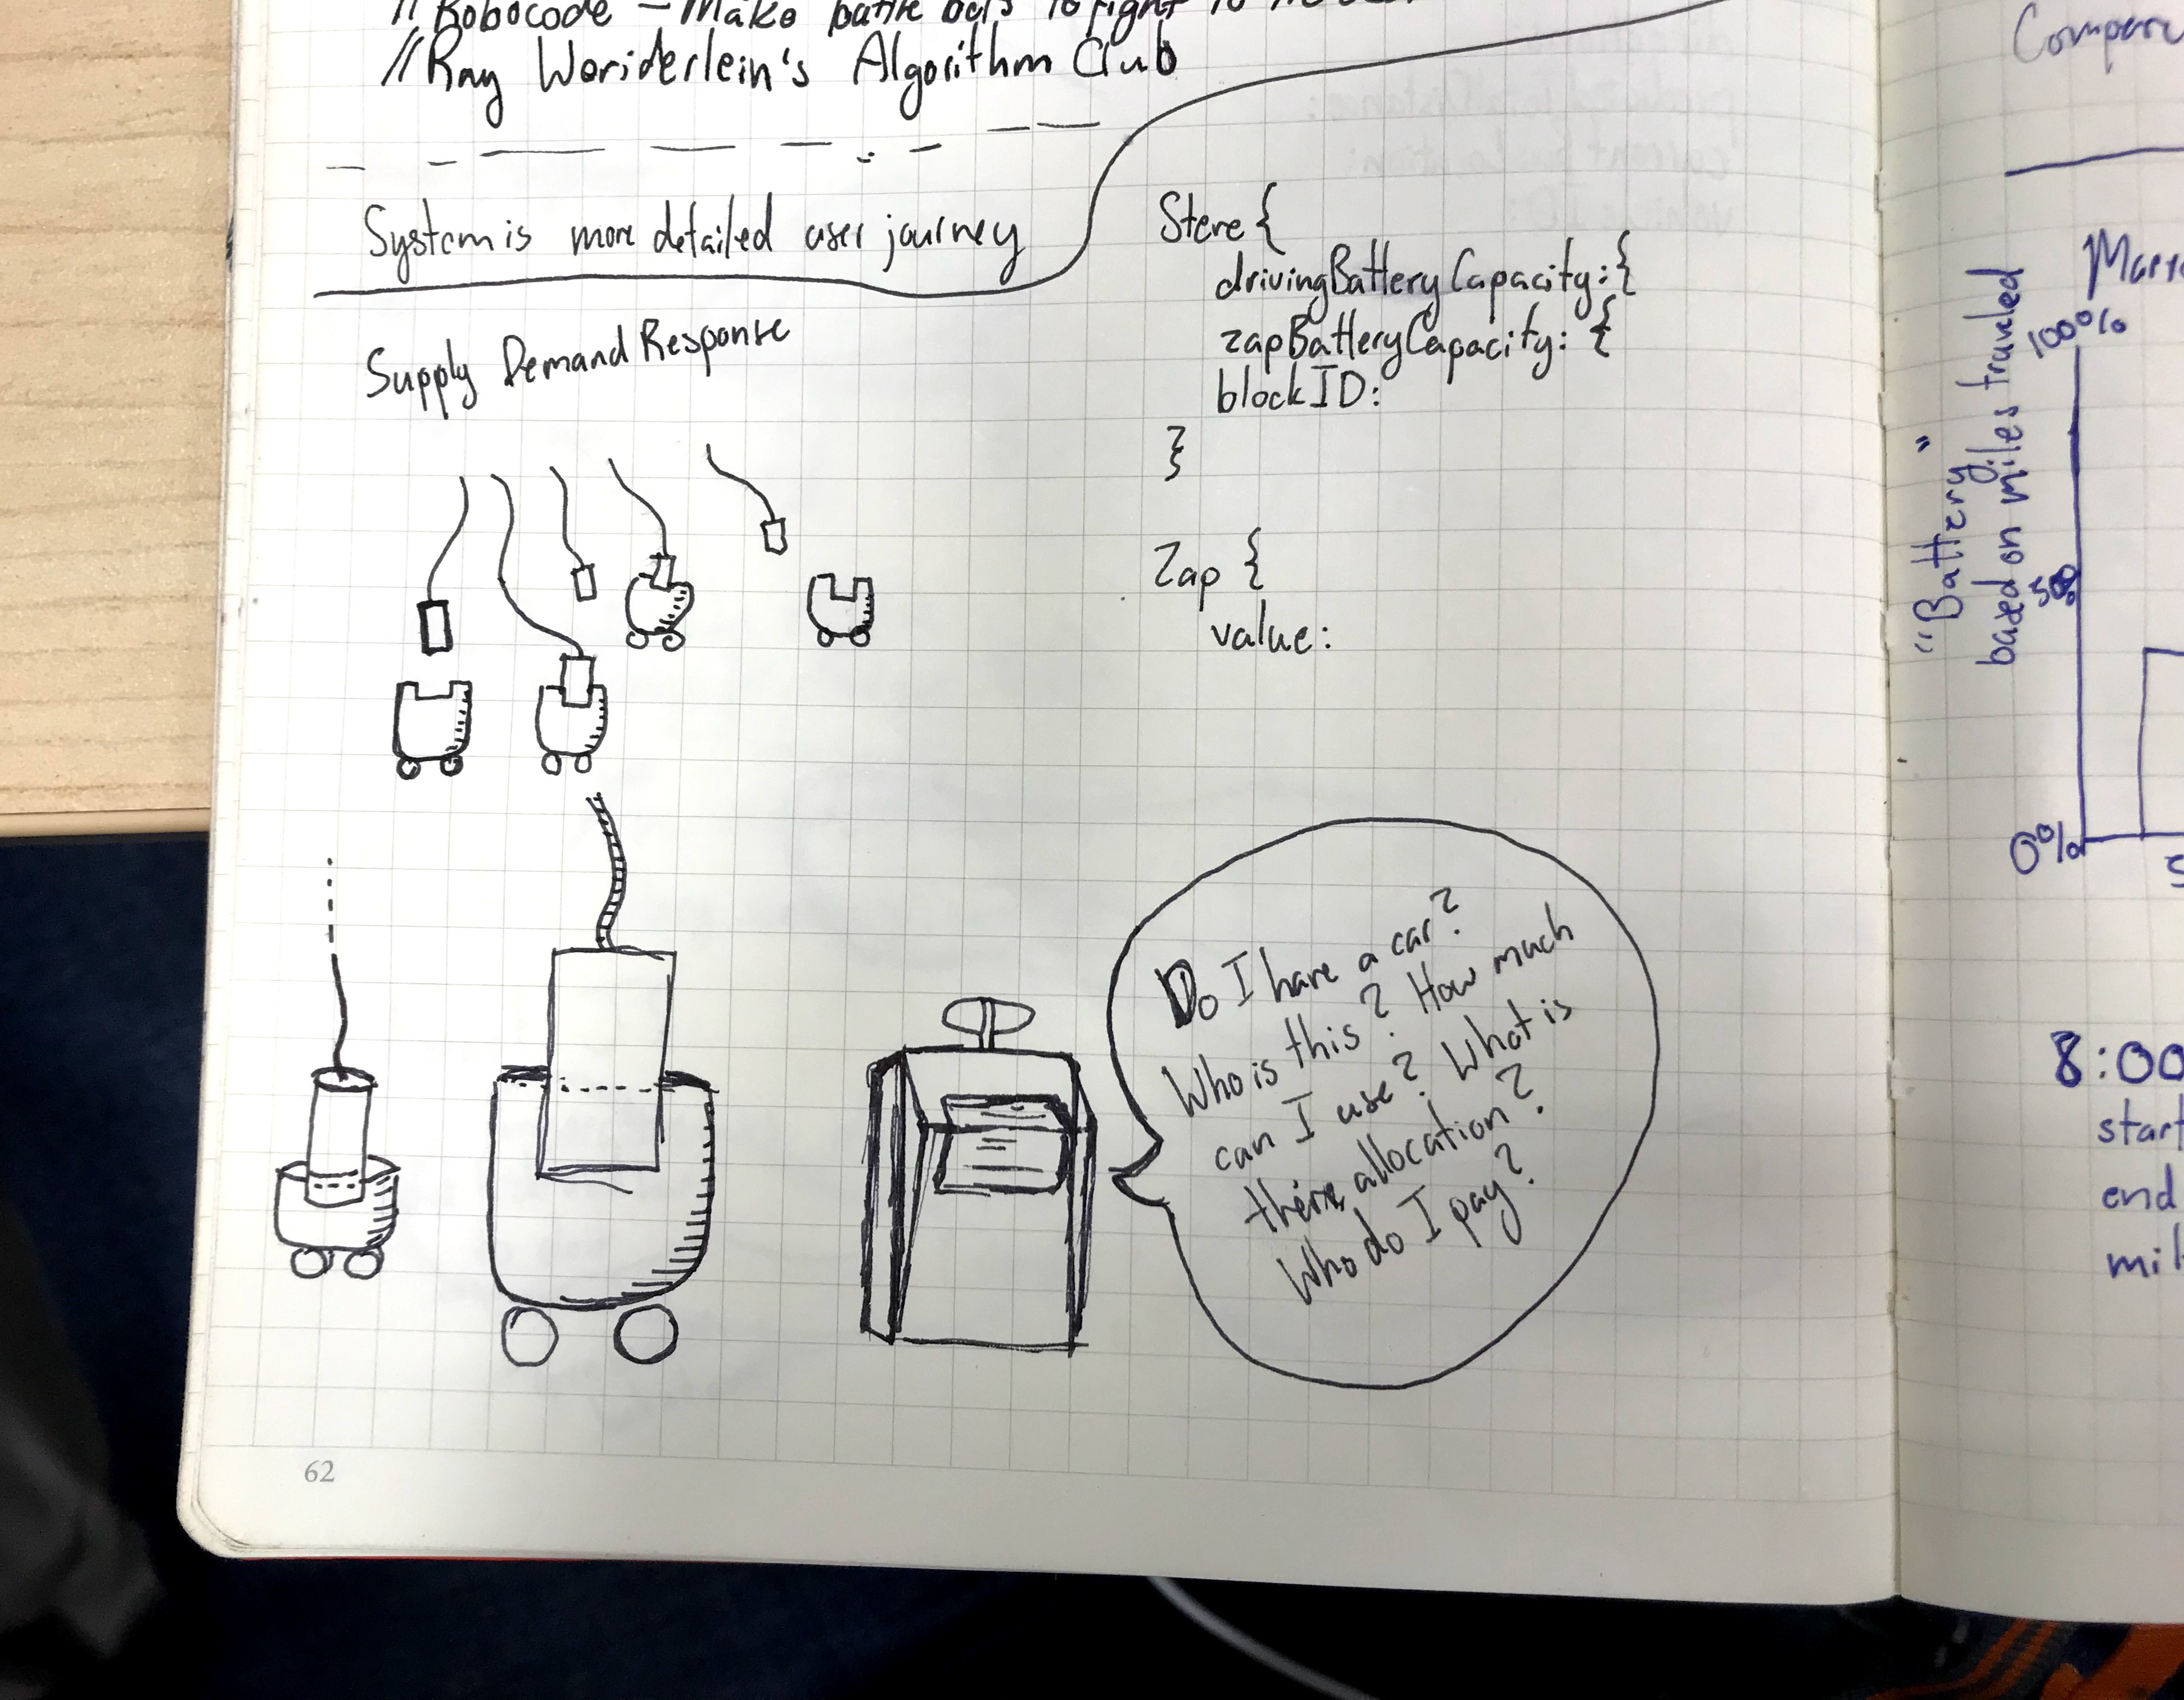 // Robocode – Make battle bots to fight to
// Ray Woriderlein's Algorithm Club
System is more detailed user journey
Supply Demand Response
Steve {
drivingBatteryCapacity: {
zapBatteryCapacity: {
blockID:
}
Zap {
value:
Do I have a car?
Who is this? How much
can I use? What is
their allocation?
Who do I pay?
62
Compare
"Battery"
based on miles traveled
100%
50%
0%
8:00
start
end